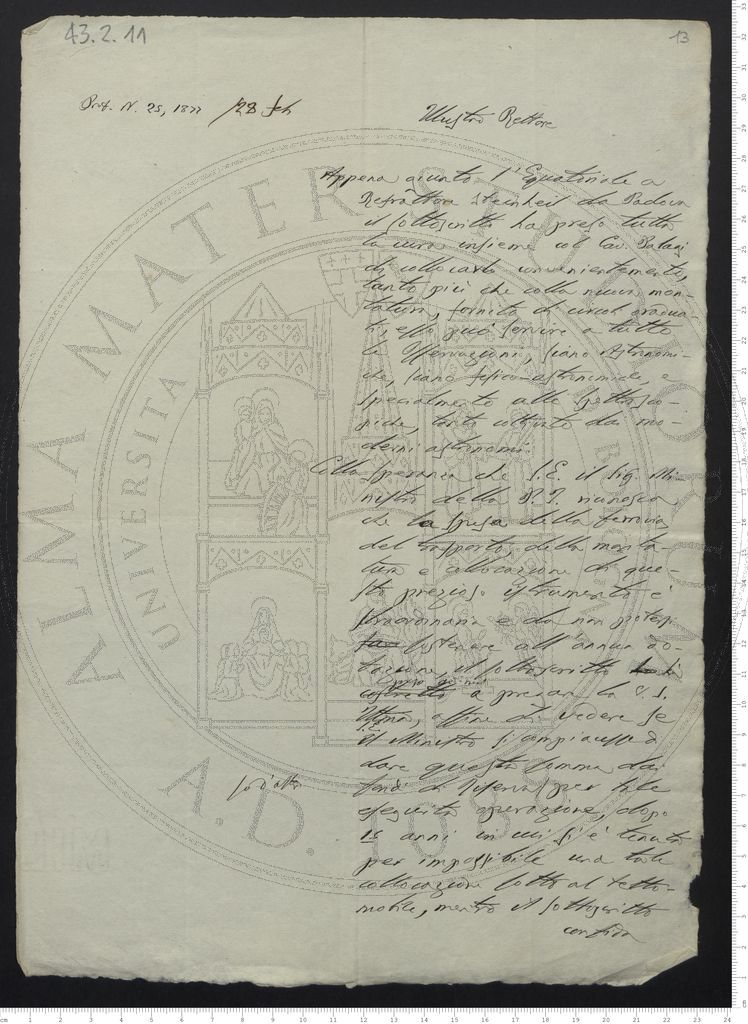 43.2.11
13
Prot. N. 25, 1877 /28 feb
Illustre Rettore
Appena giunto l'Equatoriale a
Refrattore Steinheil da Padova
il sottoscritto ha preso tutta
la cura insieme col Cav. Palagi
di collocarlo convenientemente,
tanto più che colla nuova mon-
tatura, fornito di circoli gradua-
ti, esso può servire a tutte
le Osservazioni, siano Astronomi-
che, siano fisico-astronomiche, e
specialmente alle spettrosco-
piche, tanto coltivate dai mo-
derni astronomi.
Colla speranza che S. E. il Sig. Mi-
nistro della P. I. riconosca
che la spesa della ferrovia
del trasporto, della monta-
tura e collocazione di que-
sto prezioso istrumento è
straordinaria e da non potersi
sostenere coll'annua do-
tazione, il sottoscritto
a pregare la V. S.
Illma, affine di vedere se
S. E.
il Ministro si compiacesse di
dare questa somma dai
fondi di riserva per tale
eseguita operazione, dopo
15 anni in cui si è tenuta
per impossibile una tale
collocazione sotto al tetto
mobile, mentre il sottoscritto
confida
ALMA MATER STUDIORUM
UNIVERSITA
A.D. 1088